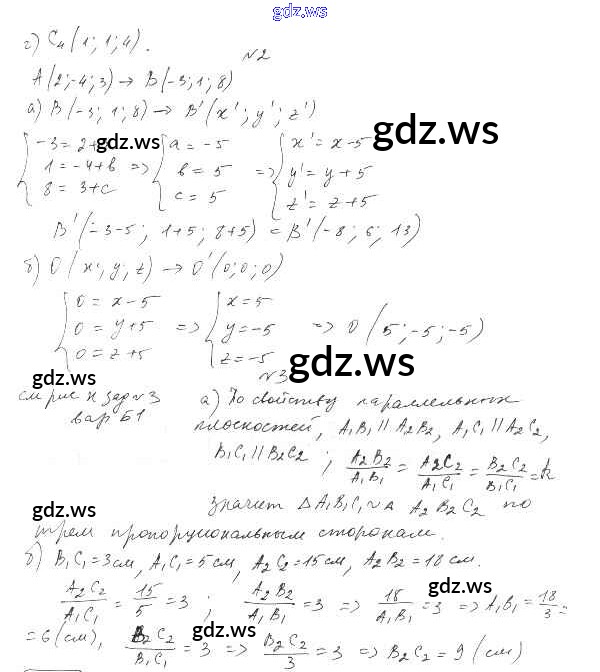 gdz.ws
г) C₄(1; 1; 4).
№2
A(2; -4; 3) → B(-3; 1; 8)
а) B(-3; 1; 8) → B'(x'; y'; z')
gdz.ws
{ -3 = 2+a { a = -5 { x' = x-5
gdz.ws
{ 1 = -4+b => { b = 5 => { y' = y+5
{ 8 = 3+c { c = 5 { z' = z+5
B'(-3-5; 1+5; 8+5) = B'(-8; 6; 13)
б) O(x; y; z) → O'(0; 0; 0)
{ 0 = x-5 { x = 5
{ 0 = y+5 => { y = -5 => O(5; -5; -5)
{ 0 = z+5 { z = -5
gdz.ws
gdz.ws
№3
см рис к зад №3
вар Б1
а) По свойству параллельных
плоскостей, A₁B₁ || A₂B₂, A₁C₁ || A₂C₂,
B₁C₁ || B₂C₂; A₂B₂/A₁B₁ = A₂C₂/A₁C₁ = B₂C₂/B₁C₁ = k
значит △A₁B₁C₁ ~ △ A₂B₂C₂ по
gdz.ws
трем пропорциональным сторонам.
б) B₁C₁ = 3 см, A₁C₁ = 5 см, A₂C₂ = 15 см, A₂B₂ = 18 см.
A₂C₂/A₁C₁ = 15/5 = 3; A₂B₂/A₁B₁ = 3 => 18/A₁B₁ = 3 => A₁B₁ = 18/3 =
gdz.ws
= 6 (см), B₂C₂/B₁C₁ = 3 => B₂C₂/3 = 3 => B₂C₂ = 9 (см)
gdz.ws